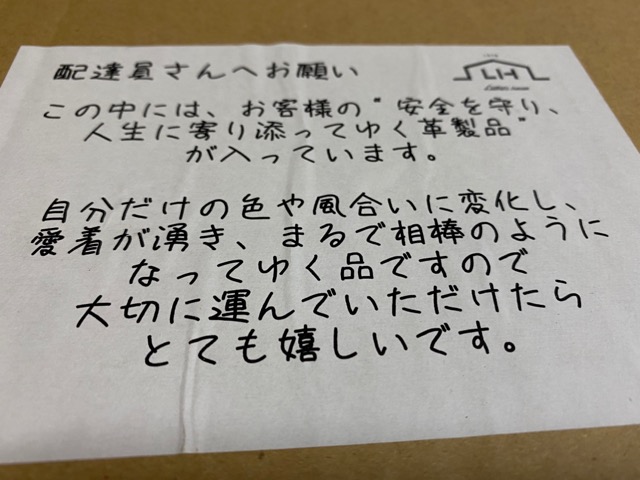 配達員さんへお願い
LH
この中には、お客様の"安全を守り、
人生に寄り添ってゆく革製品"
が入っています。
自分だけの色や風合いに変化し、
愛着が湧き、まるで相棒のように
なってゆく品ですので
大切に運んでいただけたら
とても嬉しいです。